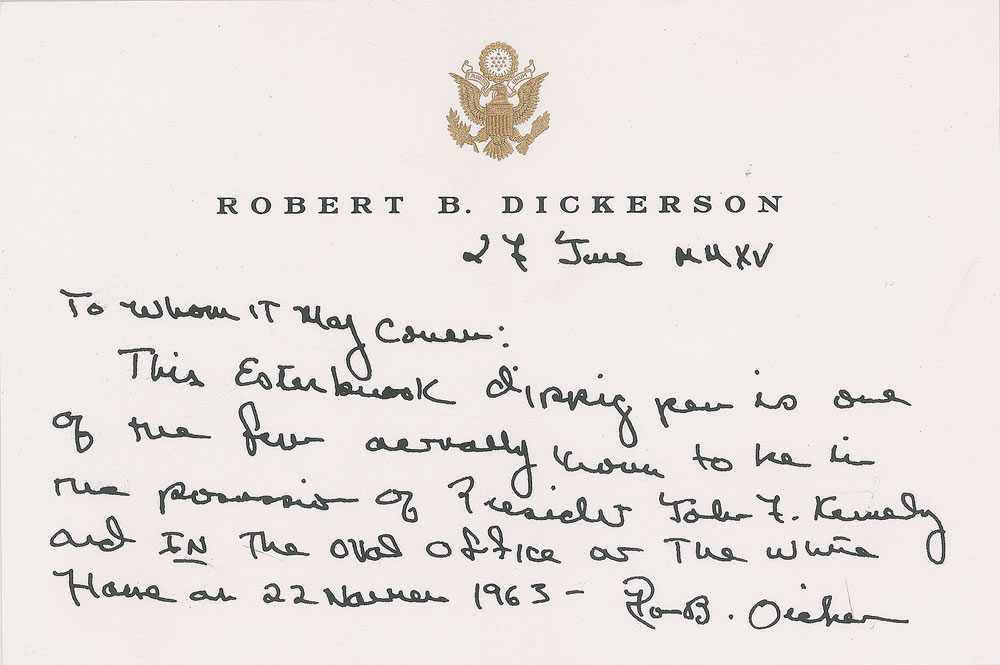 ROBERT B. DICKERSON
27 June MMXV
To Whom IT May Concern:
This Esterbrook dipping pen is one
of the few actually known to be in
the possession of President John F. Kennedy
and IN The Oval Office at The White
House on 22 November 1963 – Rob B. Dickerson